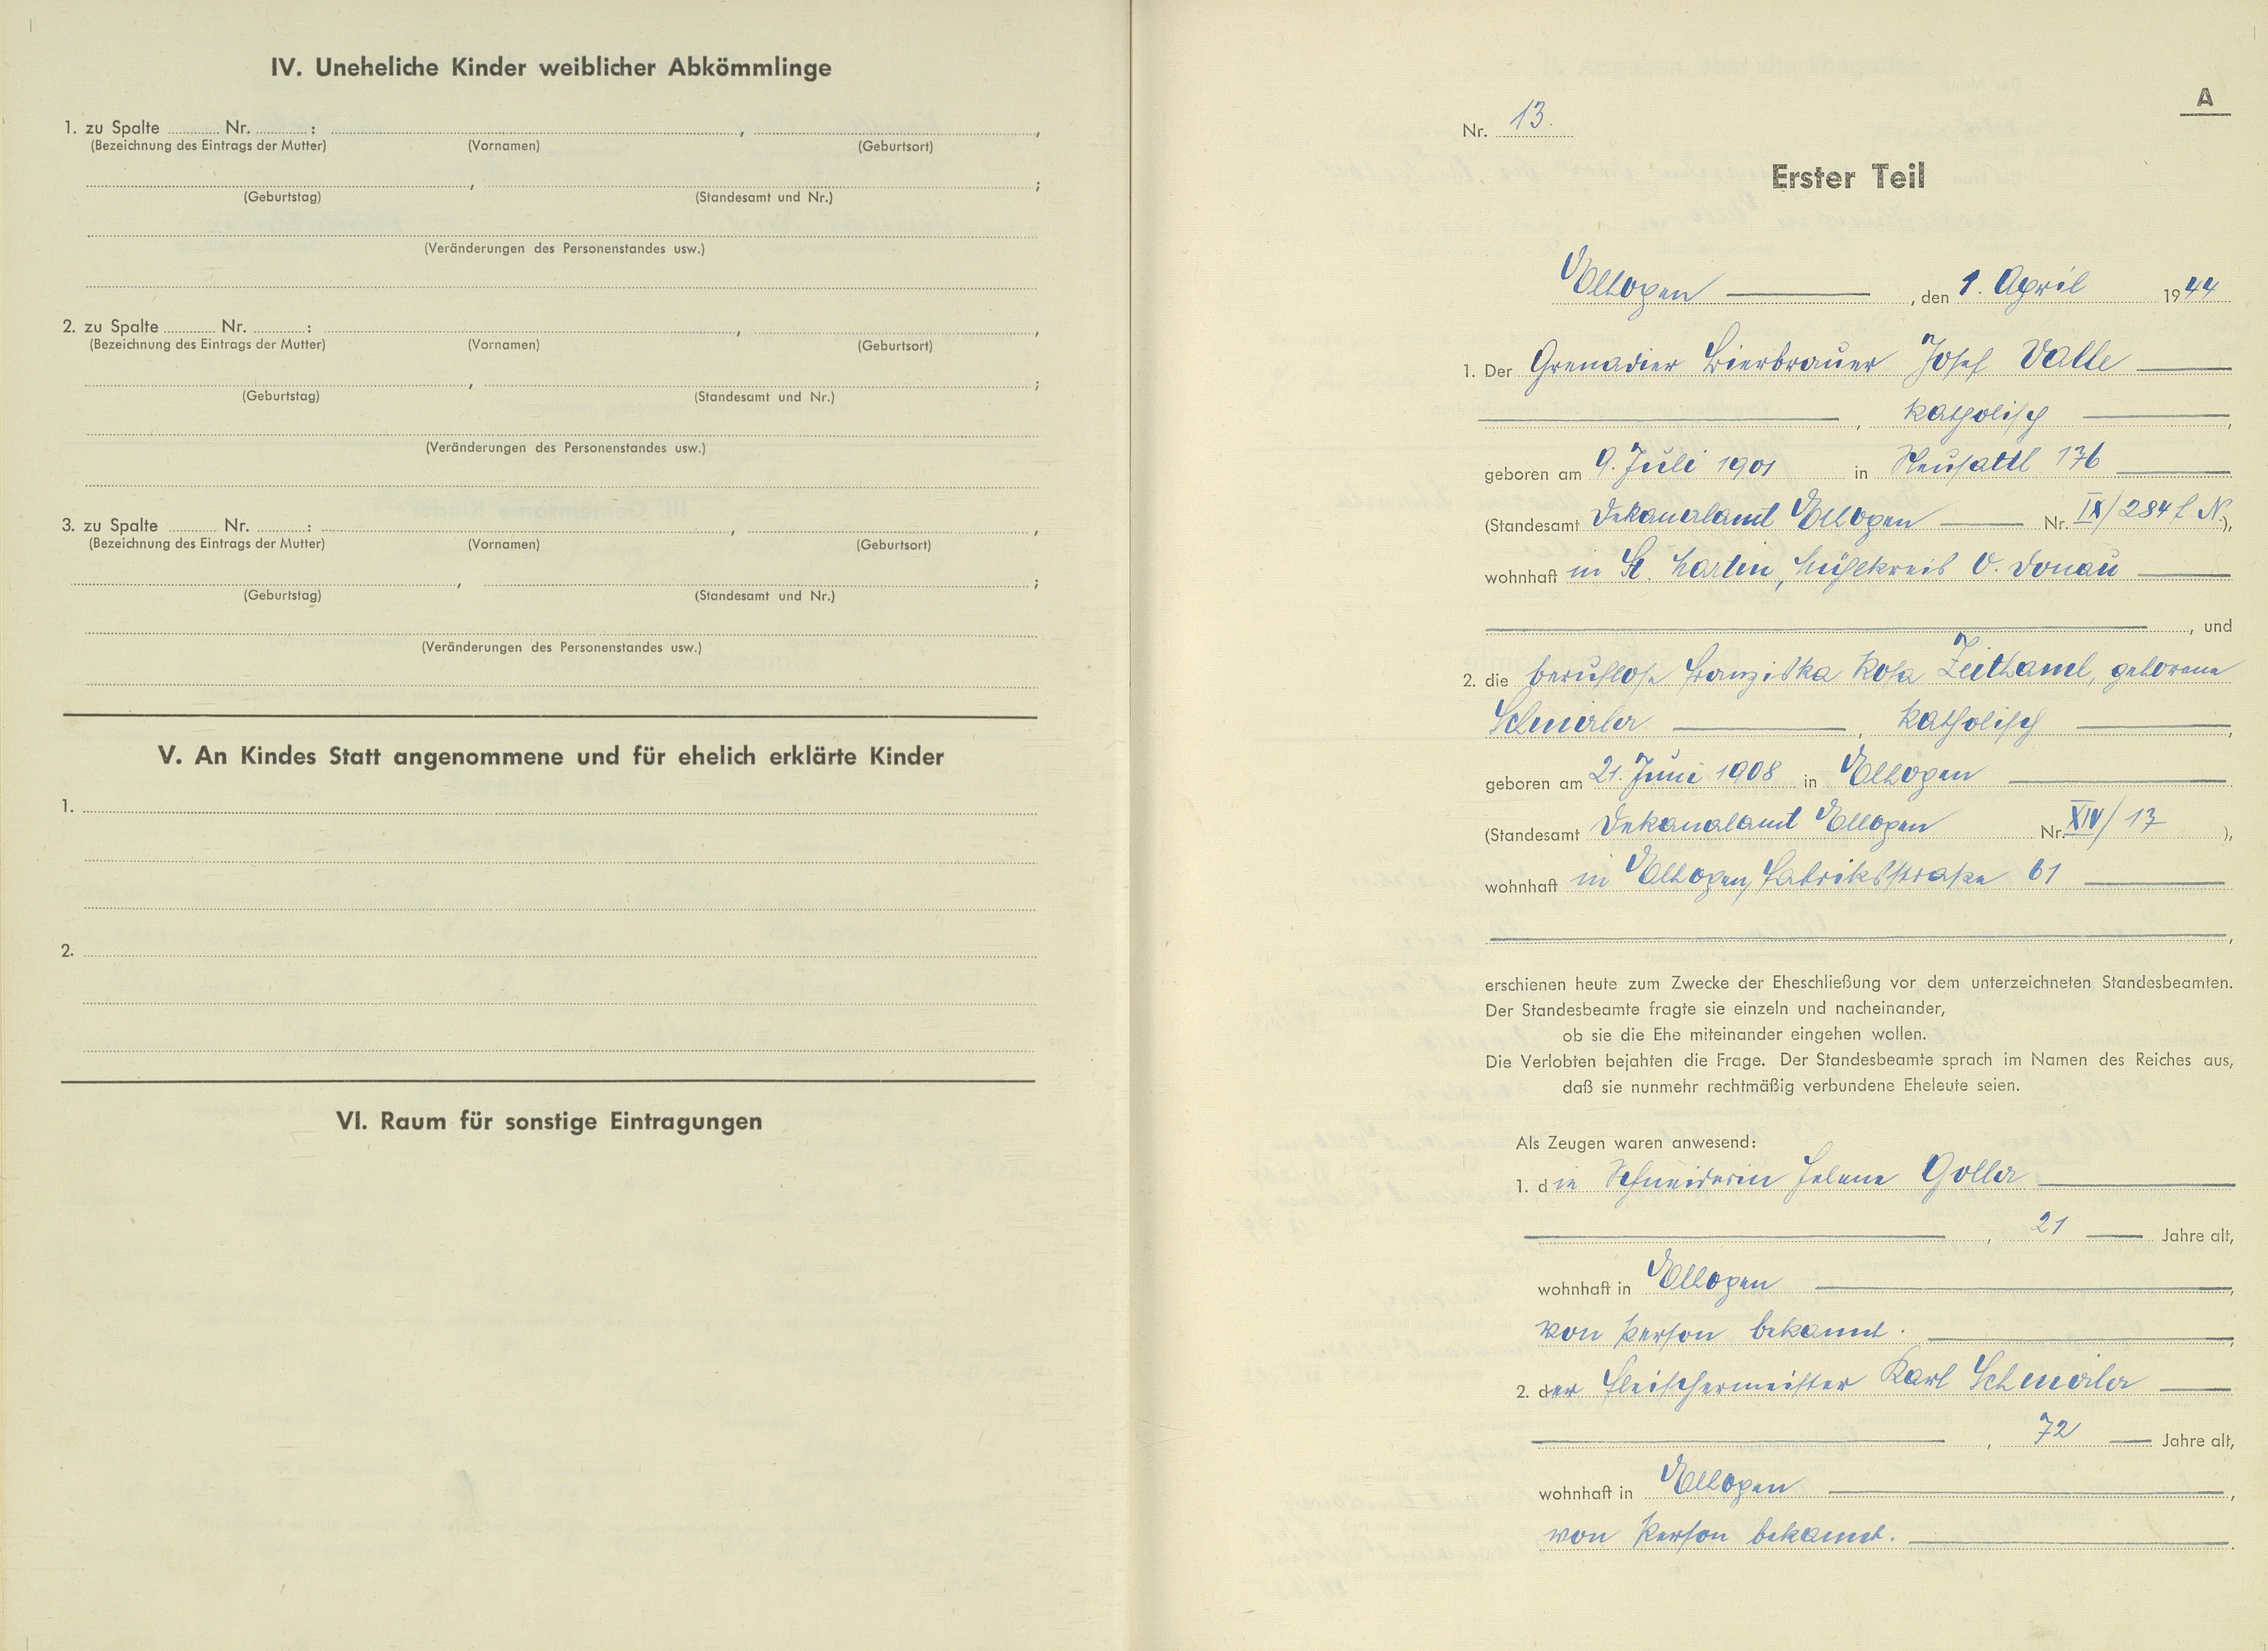 IV. Uneheliche Kinder weiblicher Abkömmlinge
1. zu Spalte ........ Nr. ........ : ........ , ........ ,
(Bezeichnung des Eintrags der Mutter) (Vornamen) (Geburtsort)
........ , ........ ;
(Geburtstag) (Standesamt und Nr.)
(Veränderungen des Personenstandes usw.)
2. zu Spalte ........ Nr. ........ : ........ , ........ ,
(Bezeichnung des Eintrags der Mutter) (Vornamen) (Geburtsort)
........ , ........ ;
(Geburtstag) (Standesamt und Nr.)
(Veränderungen des Personenstandes usw.)
3. zu Spalte ........ Nr. ........ : ........ , ........ ,
(Bezeichnung des Eintrags der Mutter) (Vornamen) (Geburtsort)
........ , ........ ;
(Geburtstag) (Standesamt und Nr.)
(Veränderungen des Personenstandes usw.)
V. An Kindes Statt angenommene und für ehelich erklärte Kinder
1.
2.
VI. Raum für sonstige Eintragungen
A
Nr. 13.
Erster Teil
Elbogen , den 1. April 1944
1. Der Grenadier Bierbrauer Josef Valte
, katholisch ,
geboren am 9. Juli 1901 in Neusattl 136
(Standesamt Dekanalamt Elbogen Nr. IX/284 f. N.),
wohnhaft in St. Martin, Mühlkreis O. Donau
, und
2. die berufslose Franziska Rosa Zeithaml, geborene
Schmierler , katholisch ,
geboren am 21. Juni 1908 in Elbogen
(Standesamt Dekanalamt Elbogen Nr. XIV/17 ),
wohnhaft in Elbogen, Fabriksstraße 61
,
erschienen heute zum Zwecke der Eheschließung vor dem unterzeichneten Standesbeamten.
Der Standesbeamte fragte sie einzeln und nacheinander,
ob sie die Ehe miteinander eingehen wollen.
Die Verlobten bejahten die Frage. Der Standesbeamte sprach im Namen des Reiches aus,
daß sie nunmehr rechtmäßig verbundene Eheleute seien.
Als Zeugen waren anwesend:
1. die Schneiderin Helene Goller
, 21 Jahre alt,
wohnhaft in Elbogen ,
von Person bekannt.
2. der Fleischermeister Karl Schmierler
, 72 Jahre alt,
wohnhaft in Elbogen ,
von Person bekannt.